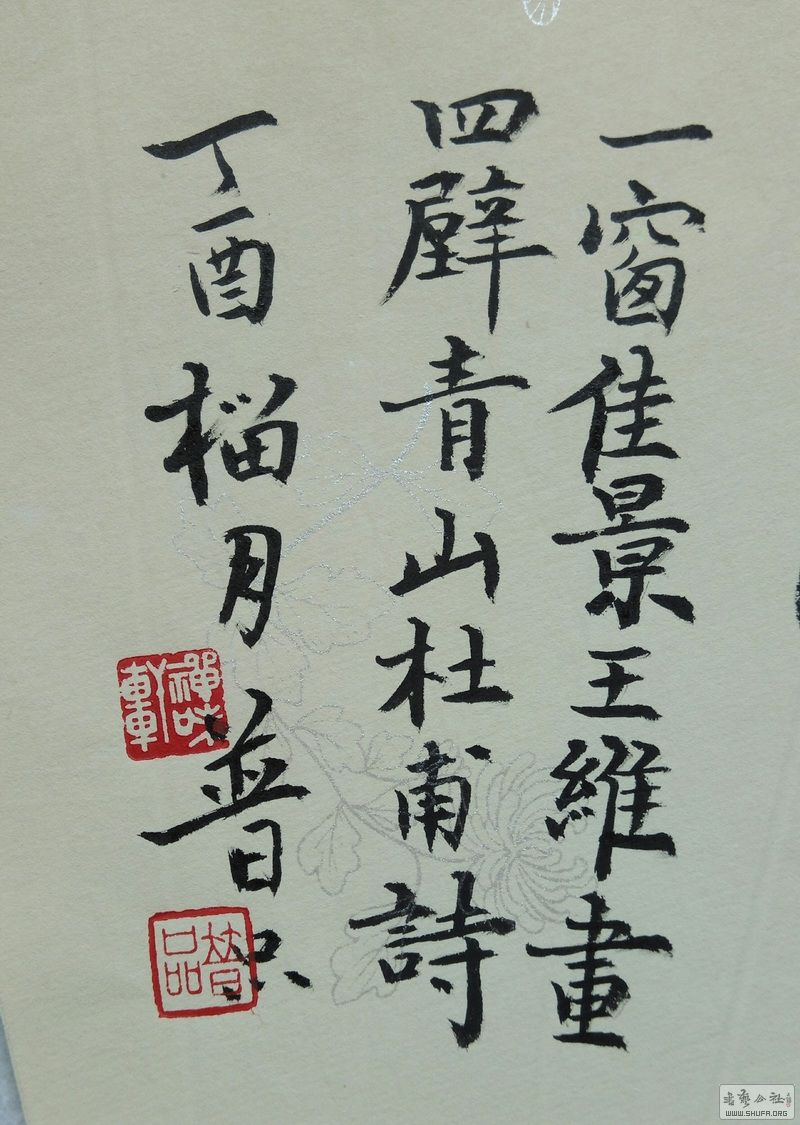 一窗佳景王維畫
四壁青山杜甫詩
丁酉榴月普只
禪味軒
普品
書藝公社
WWW.SHUFA.ORG